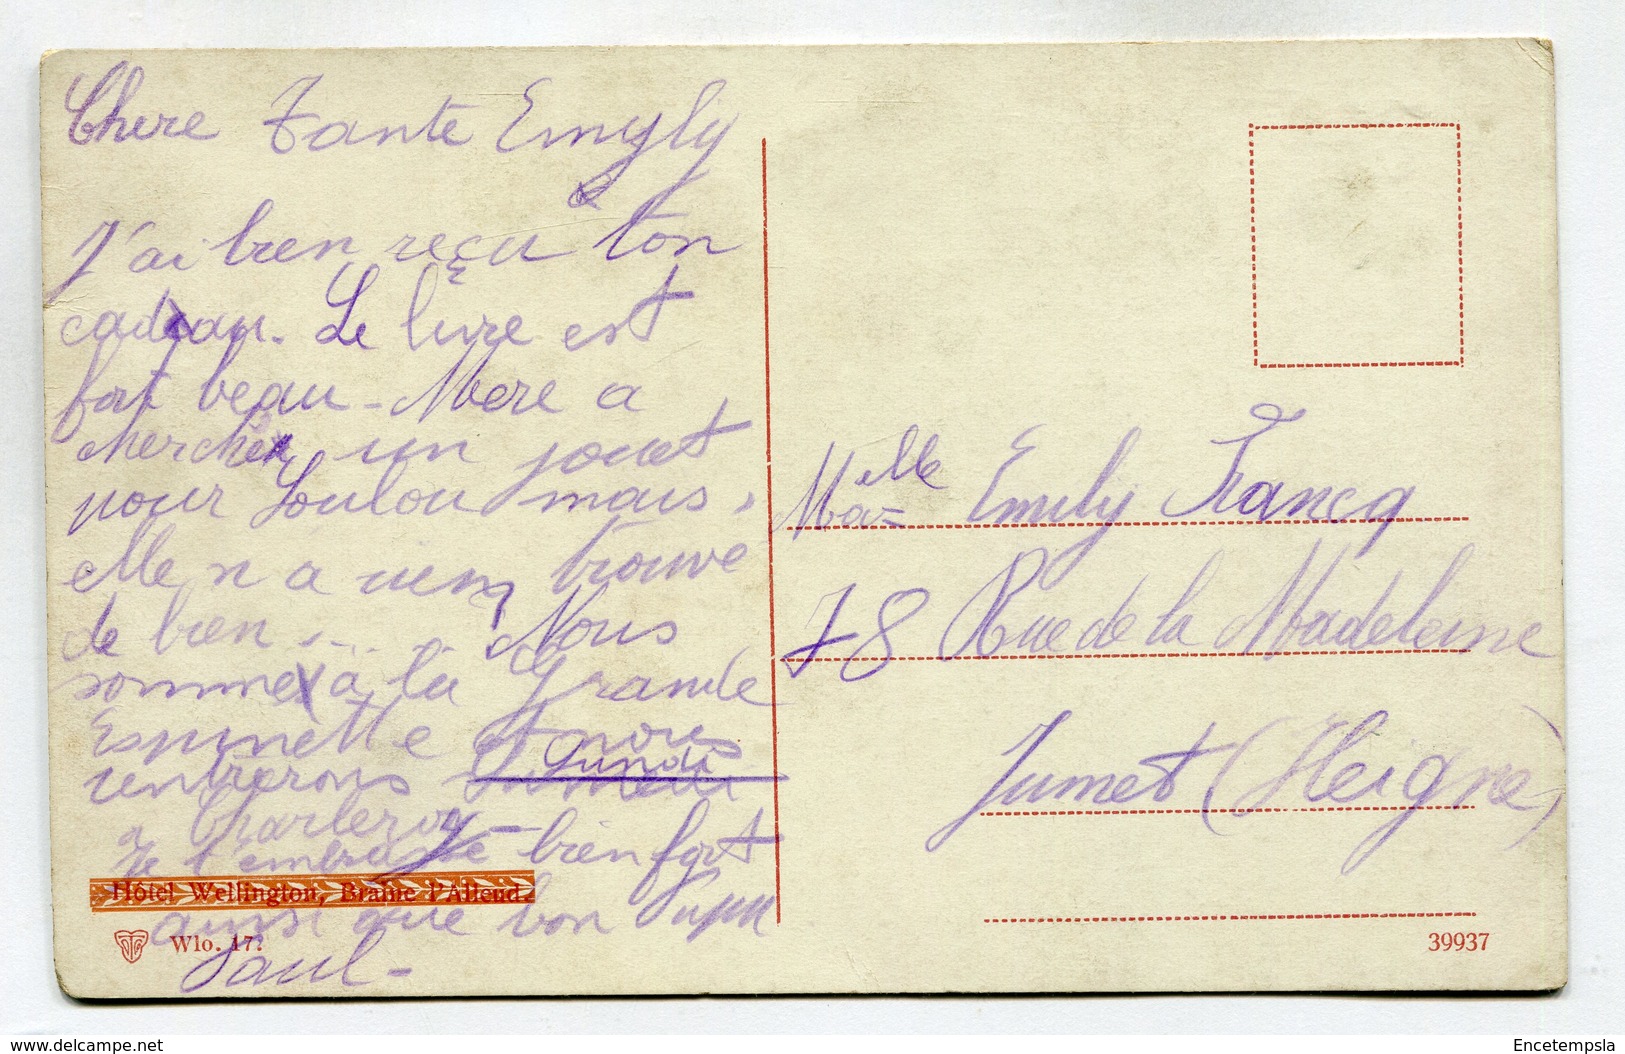 Chere Tante Emyly
J'ai bien reçu ton
cadeau. Le livre est
fort beau - Mere a
cherché un jouet
pour Loulou mais,
elle n a rien trouve
de bien ... Nous
somme à la Grande
Espinette et nous
rentrerons Lundi
a Charleroy -
Je t'embrasse bien fort
ainsi que bon
Paul -
Hôtel Wellington, Braine l'Alleud.
Wlo. 17.
Ma=elle Emily Francq
78 Rue de la Madeleine
Jumet (Heigne)
39937
www.delcampe.net
Encetempsla